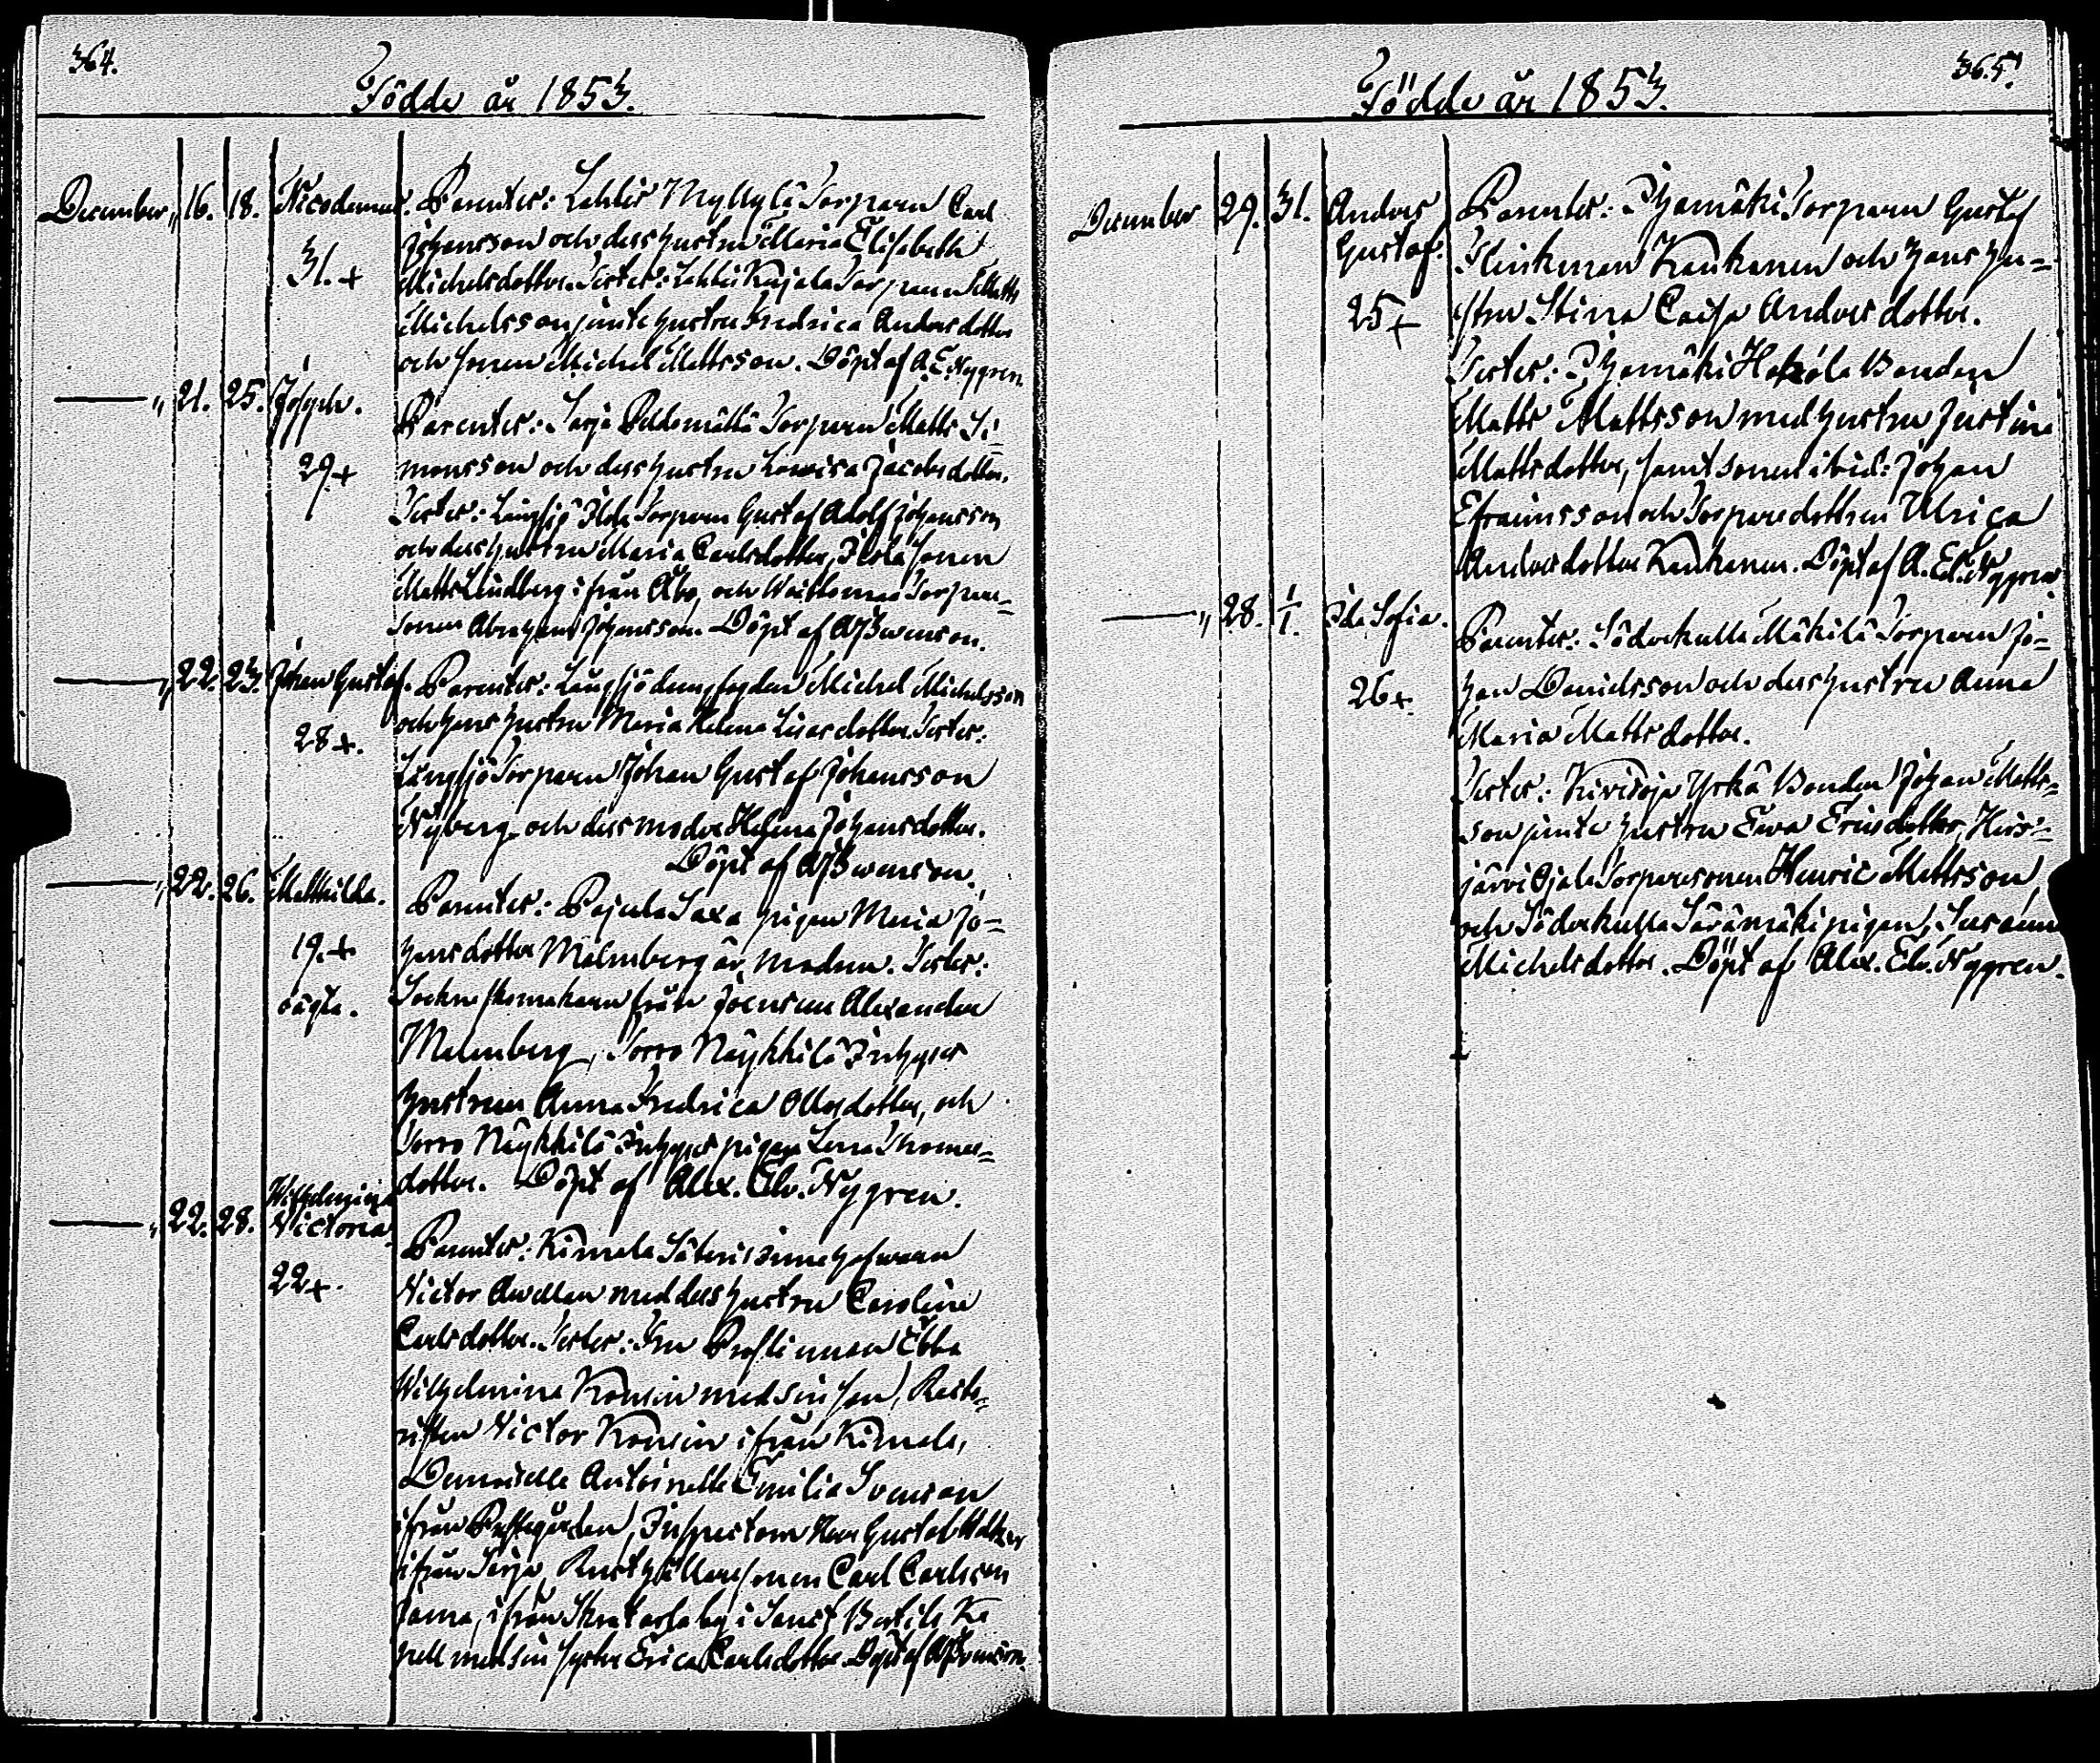 364.
Födde år 1853.
December „ 16. 18. Nicodemus. 31. +
Parenter: Lahtis Myllylä Torparen Carl
Johansson och dess hustru Maria Elisabeth
Michelsdotter. Testes: Lahtis Kajala Torparen Matts
Michelsson jemte hustru Fredrica Andersdotter
och sonen Michel Mattsson. Döpt af A. E. Nygren.
„ 21. 25. Joseph. 29. +
Parenter: Sarja Torparen Matts Si-
monsson och dess hustru Lowisa Jacobsdotter.
Testes: Långsjö Torparen Gustaf Adolf Johansson
och dess hustru Maria Carlsdotter, sonen
Matts Lindberg ifrån Åbo, och Torpare-
sonen Abraham Johansson. Döpt af Swenson.
„ 22. 23. Johan Gustaf. 28 +.
Parenter: Långsjö Michel Michelsson
och hans hustru Maria Helena Testes:
Långsjö Torparen Johan Gustaf Johansson
Nyberg och dess moder Helena Johansdotter.
Döpt af Swenson.
„ 22. 26. Mathilda. 19. + oägta.
Parenter: Pajula Saxa pigan Maria Jo-
hansdotter Malmberg är modren. Testes:
Sockneskomakaren från Joensuu Alexander
Malmberg, Torro Näykkilä Inhyses
hustrun Anna Fredrica dotter, och
Torro Näykkilä Inhyses pigan Lena Thomas-
dotter. Döpt af Alex. Edv. Nygren.
„ 22. 28. Wilhelmina Victoria. 22 +.
Parenter: Kimala Säteris
Victor med dess hustru Carolina
Carlsdotter. Testes: Fru Prostinnan Ebba
Wilhelmina Konsin med sin son,
Victor Konsin ifrån Kimala,
Demoiselle Antoinette Emilia Svenson
ifrån Prestgården, Inspectoren Herr Gustaf
ifrån Sarja, Rusthållaresonen Carl Carlsson
ifrån by i Sanct Bertils Ka-
pell med sin syster Erica Carlsdotter. Döpt af Svenson.
365.
Födde år 1853.
December 29. 31. Anders Gustaf. 25 +
Parenter: Ihamäki Torparen Gustaf
Flinkman Kaukanen och hans hu-
stru Stina Caisa Andersdotter.
Testes: Ihamäki Bonden
Matts Mattsson med hustru Justina
Mattsdotter, samt sonen ibid: Johan
Efraimsson och Torparedottren Ulrica
Andersdotter Kaukanen. Döpt af A. Ed. Nygren.
„ 28. 1/1. Ida Sofia. 26 +.
Parenter: Söderkulla Mäkilä Torparen Jo-
han Danielsson och dess hustru Anna
Maria Mattsdotter.
Testes: Kivisoja Yrkä Bonden Johan Matts-
son jemte hustru Ewa Ericsdotter,
järvi Ojala Torparesonen Henric Mattsson,
och Söderkulla Säramäki pigan, Susanna
Michelsdotter. Döpt af Alex. Edv. Nygren.